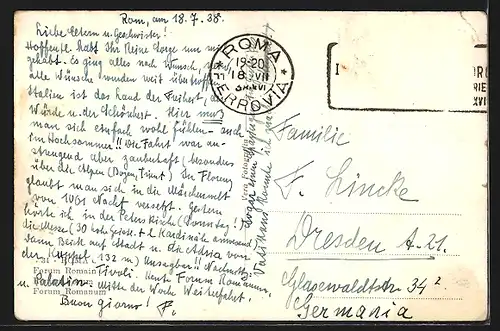 Rom, am 18.7.38.
Liebe Eltern u. Geschwister!
Hoffentl. habt Ihr keine Sorge um mich
gehabt. Es ging alles nach Wunsch,
alle Wünsche wurden weit übertroffen
Italien ist das Land der Freiheit, der
Würde u. der Schönheit. Hier muß
man sich einfach wohl fühlen - auch
im Hochsommer!! Die Fahrt war an-
strengend aber zauberhaft (besonders
über die Alpen (Bozen, Trient). In Florenz
glaubt man sich in die Märchenwelt
von 1001 Nacht versetzt. Gestern
hörte ich in der Peterskirche (Sonntag!)
die Messe (30 hohe Geistl. + 2 Kardinäle anwesend)
dann Blick auf Stadt u. die Adria von
der Kuppel 132 m) Unsagbar!! Nachmitt.
Tivoli. Heute Forum Romanum
u. Palatin. Mitte der Woche Weiterfahrt.
Buon giorno! F.
ROMA
19-20
18 VII
XVI
FERROVIA
Familie
F. Lincke
Dresden A. 21.
Glasewaldtstr. 34 2
Germania
ROMA
Forum Romain
Forum Romanum